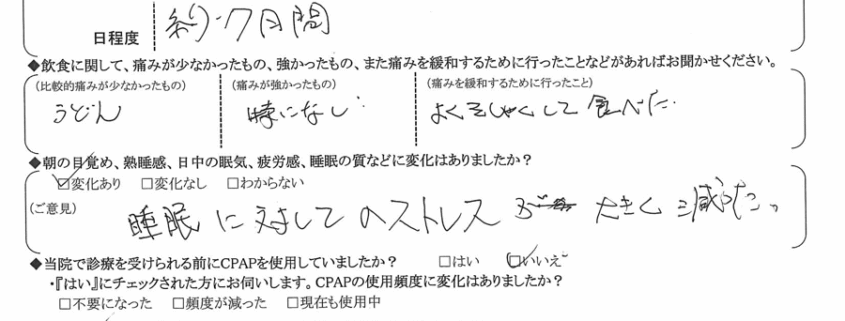 日程度 約・7日間
◆飲食に関して、痛みが少なかったもの、強かったもの、また痛みを緩和するために行ったことなどがあればお聞かせください。
(比較的痛みが少なかったもの) (痛みが強かったもの) (痛みを緩和するために行ったこと)
うどん 特になし よくそしゃくして食べた.
◆朝の目覚め、熟睡感、日中の眠気、疲労感、睡眠の質などに変化はありましたか?
☑変化あり □変化なし □わからない
(ご意見) 睡眠に対してのストレス 大きく減った。
◆当院で診療を受けられる前にCPAPを使用していましたか? □はい ☑いいえ
・『はい』にチェックされた方にお伺いします。CPAPの使用頻度に変化はありましたか?
□不要になった □頻度が減った □現在も使用中